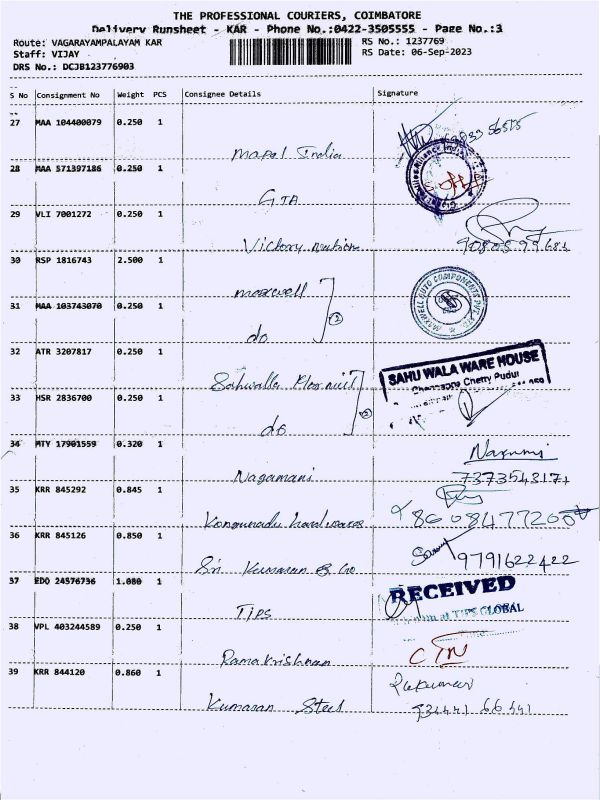 THE PROFESSIONAL COURIERS, COIMBATORE
Delivery Runsheet - KAR - Phone No.:0422-3505555 - Page No.:3
Route: VAGARAYAMPALAYAM KAR
RS No.: 1237769
Staff: VIJAY
RS Date: 06-Sep-2023
DRS No.: DCJB123776903
S No Consignment No Weight PCS Consignee Details Signature
27 MAA 104400079 0.250 1
Mapal India
28 MAA 571397186 0.250 1
GTA
29 VLI 7001272 0.250 1
Victory
30 RSP 1816743 2.500 1
maxwell
MAXWELL AUTO COMPONENTS PVT. LTD.
31 MAA 103743070 0.250 1
do
32 ATR 3207817 0.250 1
SAHU WALA WARE HOUSE
Chetty Pudur
33 HSR 2836700 0.250 1
do
34 MTY 17901559 0.320 1
Nagamani
7373543171
35 KRR 845292 0.845 1
Kongunadu hardwares
36 KRR 845126 0.850 1
9791622422
Sri Kumaran & Co
37 EDO 24576736 1.080 1
RECEIVED
TIPS GLOBAL
TIPS
38 VPL 403244589 0.250 1
Ramakrishnan
39 KRR 844120 0.860 1
Kumaran Steel